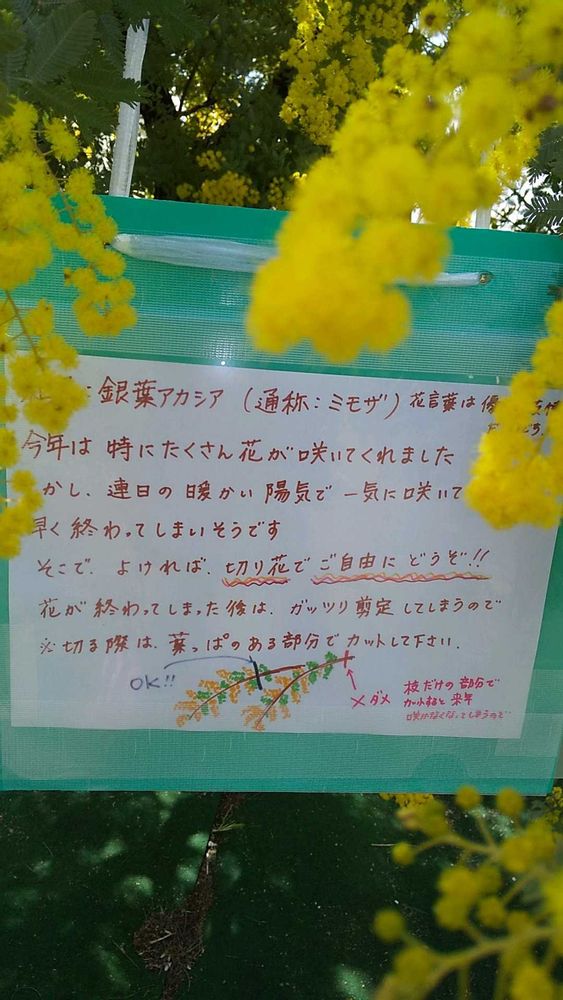 ：銀葉アカシア（通称：ミモザ）花言葉は
今年は 特にたくさん花が咲いてくれました
かし、連日の暖かい陽気で 一気に咲いて
早く終わってしまいそうです
そこで、よければ、切り花でご自由にどうぞ!!
花が終わってしまった後は、ガッツリ剪定してしまうので
※切る際は、葉っぱのある部分でカットして下さい.
OK!!
×ダメ
枝だけの部分で
カットすると来年
咲かなくなってしまうので